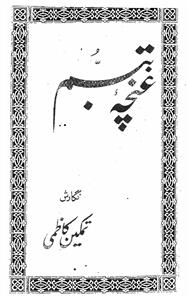 غنچۂ تبسم
نگارش
تمکین کاظمی